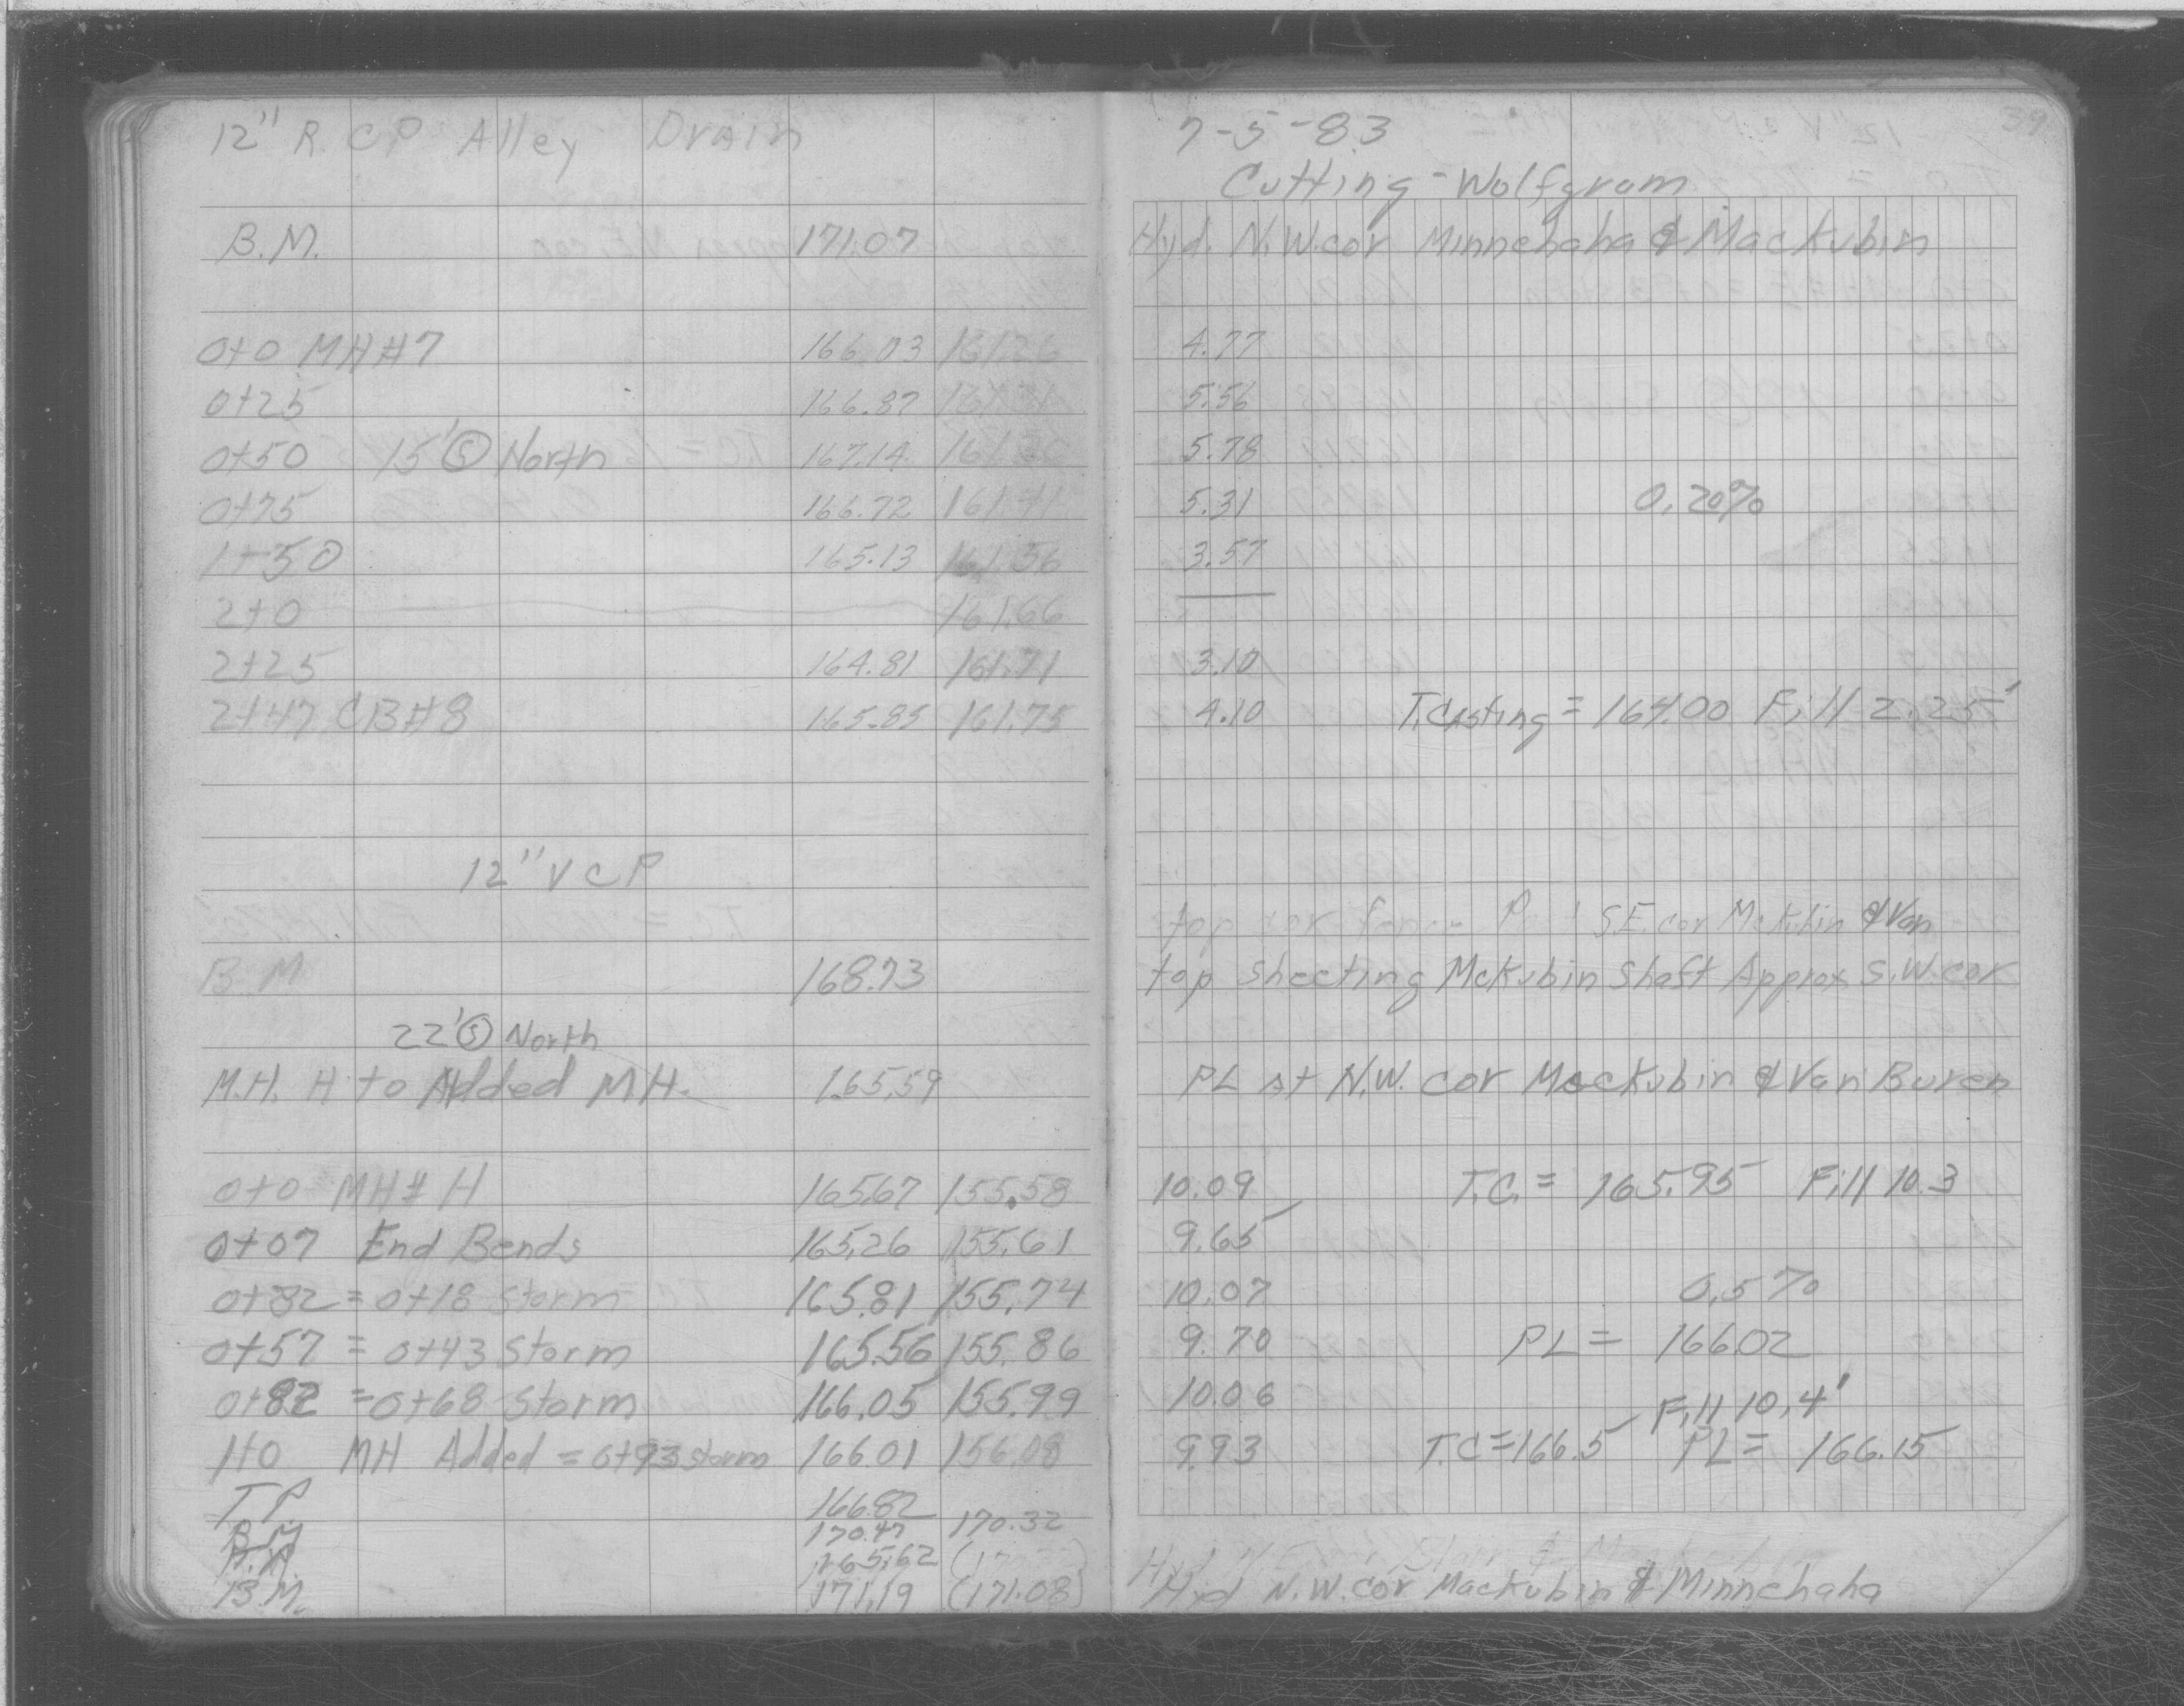 12" R.CP Alley Drain
B.M. 171.07
0+0 MH#7 166.03 161.26
0+25 166.87 161.31
0+50 15' Ⓢ North 167.14 161.36
0+75 166.72 161.41
1+50 165.13 161.56
2+0 161.66
2+25 164.81 161.71
2+47 CB#8 165.85 161.75
12" VCP
B M 168.73
22' Ⓢ North
M.H. H to Added MH. 165.59
0+0 MH# H 165.67 155.58
0+07 End Bends 165.26 155.61
0+32 = 0+18 Storm 165.81 155.74
0+57 = 0+43 Storm 165.56 155.86
0+82 = 0+68 Storm 166.05 155.99
1+0 MH Added = 0+93 storm 166.01 156.08
T.P. 166.82
B.M 170.47 170.32
165.62
B.M. 171.19 (171.08)
39
7-5-83
Cutting - Wolfgram
Hyd. N.W.cor Minnehaha & Mackubin
4.77
5.56
5.78
5.31 0.20%
3.57
3.10
4.10 T.Casting = 164.00 Fill 2.25'
top cor fence S.E. cor Mckubin & Van
top Sheeting Mckubin Shaft Approx S.W. cor
PL at N.W. cor Mackubin & Van Buren
10.09 T.C. = 165.95 Fill 10.3
9.65
10.07 0.5%
9.70 PL = 166.02
10.06 Fill 10.4'
9.93 T.C = 166.5 PL = 166.15
Hyd
Hyd N.W. cor Mackubin & Minnehaha